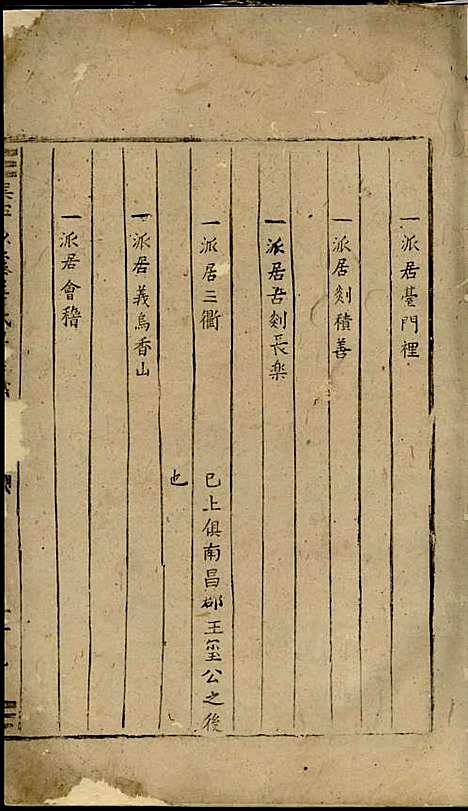 一派居臺門裡
一派居剡積善
一派居吾剡長楽
一派居三衢
已上俱南昌郡王璧公之後
也
一派居義烏香山
一派居會稽